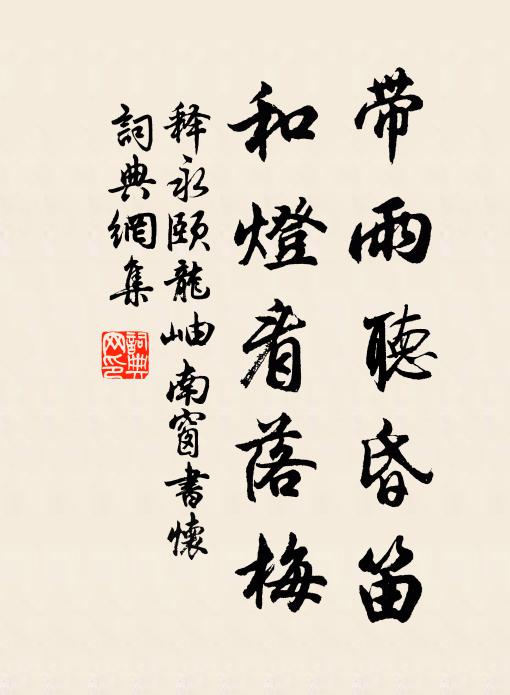 带雨聽昏笛
和燈看落梅
释永颐龍岫南窗書懷
詞典網集
詞典网印